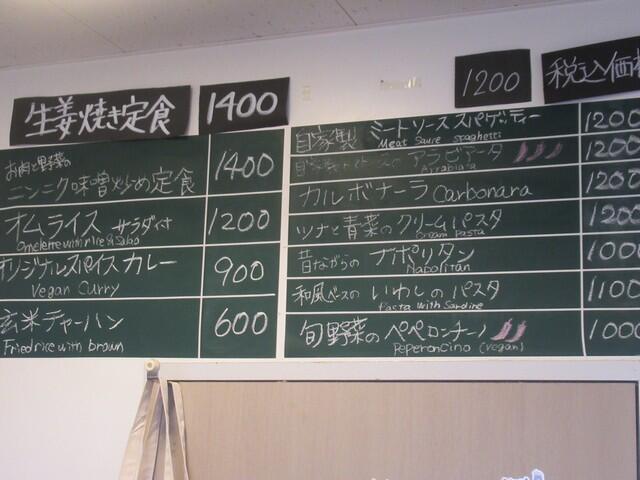 生姜焼き定食 1400
お肉と野菜の
ニンニク味噌炒め定食 1400
オムライス サラダ付
Omelette with rice & Salad 1200
オリジナルスパイスカレー
Vegan Curry 900
玄米チャーハン
Fried rice with brown 600
1200
税込価格
自家製 ミートソーススパゲッティー
Meat Saure spaghetti 1200
アラビアータ
Arrabiata 1200
カルボナーラ Carbonara 1200
ツナと青菜のクリームパスタ
Cream Pasta 1200
昔ながらの ナポリタン
Napolitan 1000
和風ベースの いわしのパスタ
Pasta with Sardine 1100
旬野菜の ペペロンチーノ
Peperoncino (vegan) 1000